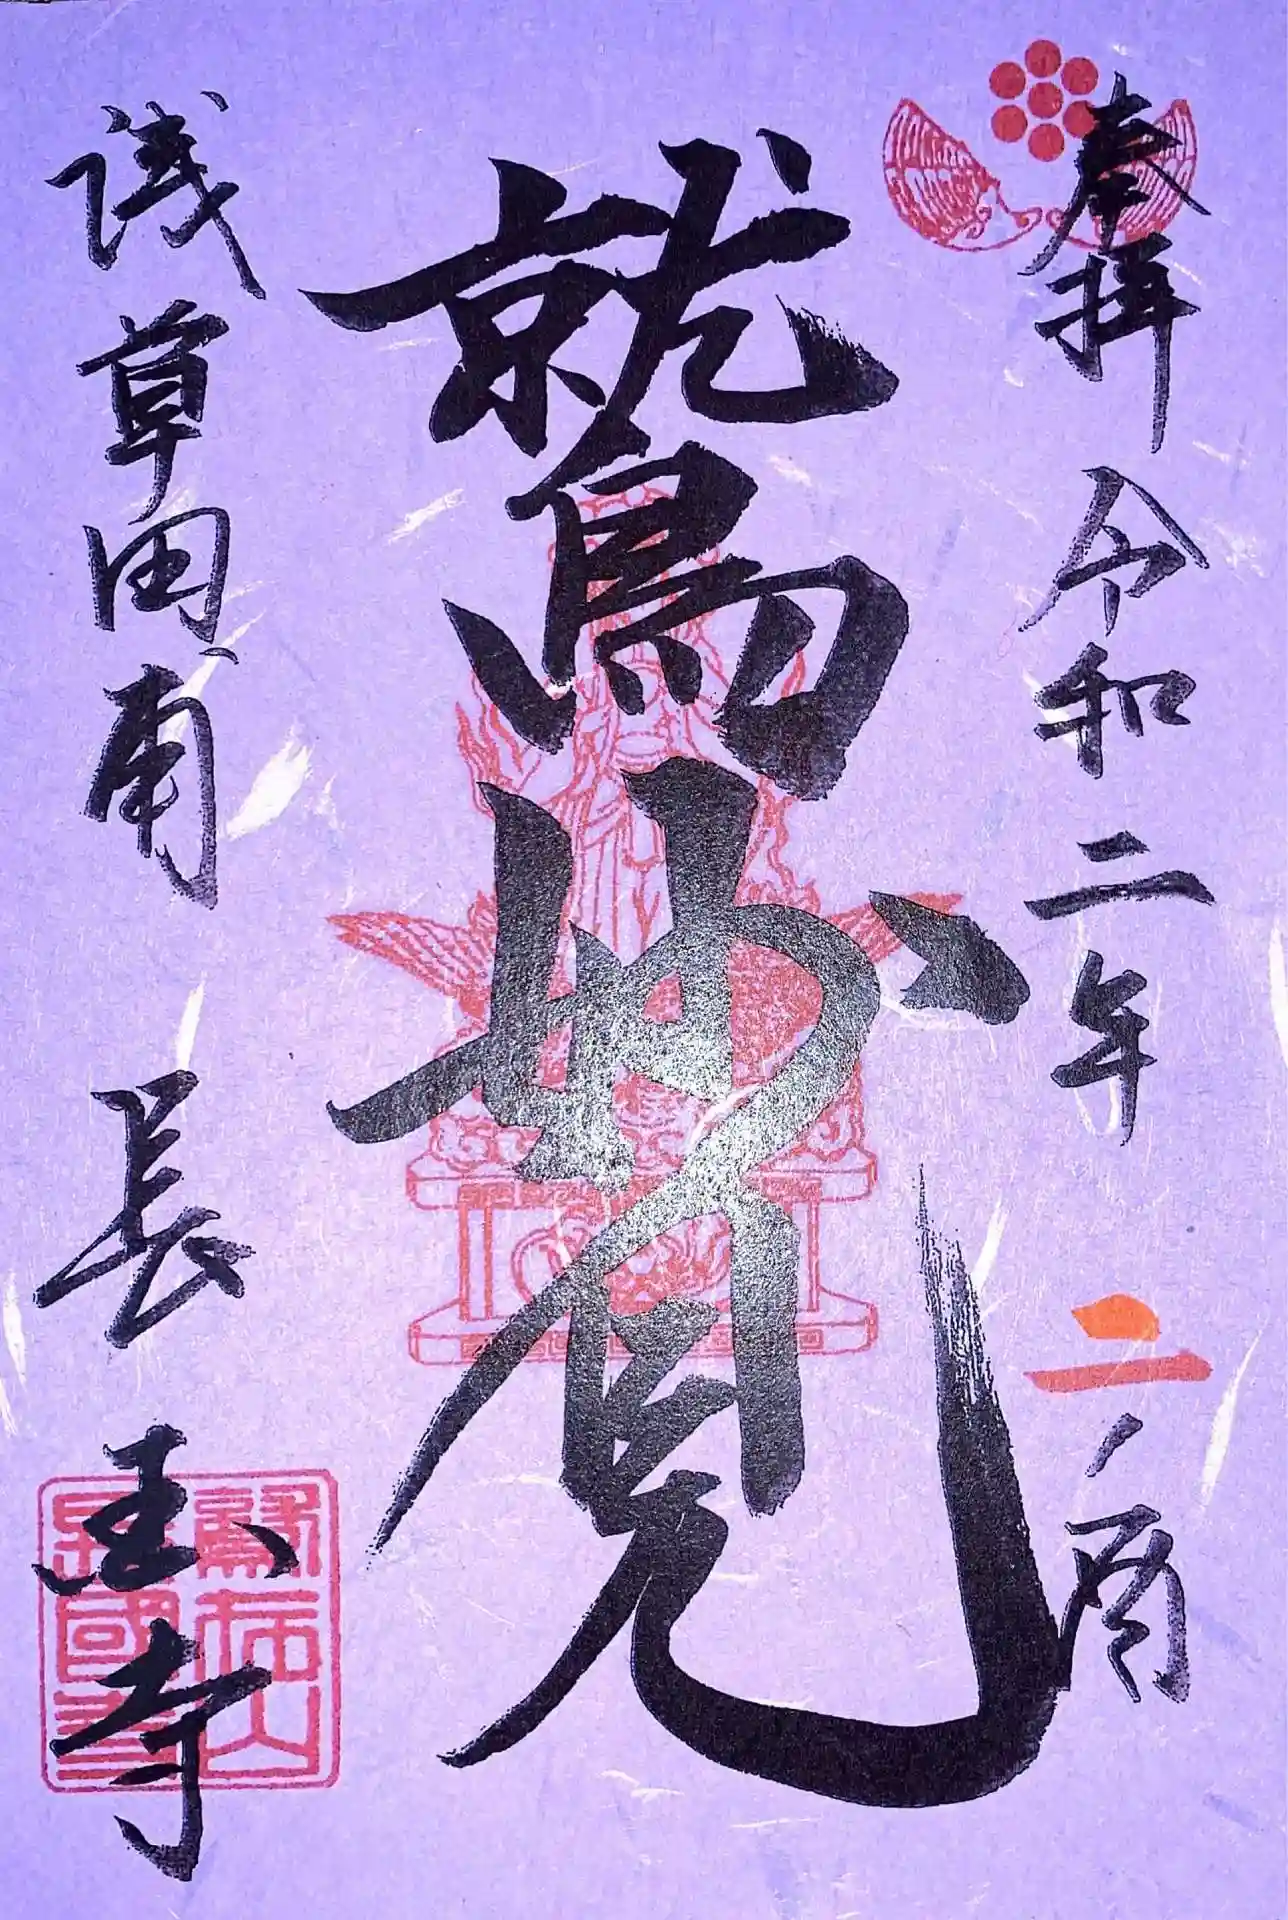 奉拝 令和二年 二ノ酉
鷲妙見
浅草田甫 長国寺
鷲在山
長國寺